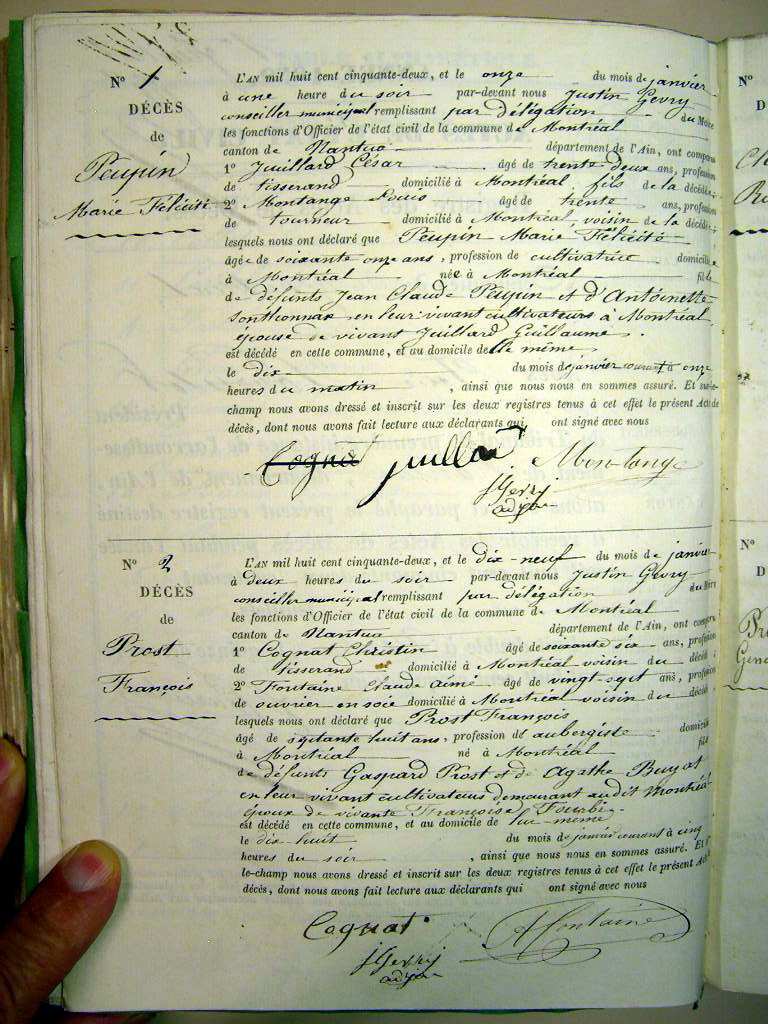 N° 1
DÉCÈS
de
Peupin
Marie Félicité
L'AN mil huit cent cinquante-deux, et le onze du mois de janvier
à une heure du soir par-devant nous Justin Gevry
conseiller municipal remplissant par délégation du Maire
les fonctions d'Officier de l'état civil de la commune de Montréal
canton de Nantua département de l'Ain, ont comparu
1° Juillard César agé de trente deux ans, profession
de tisserand domicilié à Montréal, fils de la décédée;
2° Montange Louis agé de trente ans, profession
de tourneur domicilié à Montréal, voisin de la décédée;
lesquels nous ont déclaré que Peupin Marie Félicité
agée de soixante onze ans, profession de cultivatrice domiciliée
à Montréal née à Montréal fille
de défunts Jean Claude Peupin et d'Antoinette
Sonthonnax en leur vivant cultivateurs à Montréal,
épouse de vivant Juillard Guillaume.
est décédé en cette commune, et au domicile de elle même
le dix du mois de janvier courant à onze
heures du matin, ainsi que nous nous en sommes assuré. Et sur-le-
champ nous avons dressé et inscrit sur les deux registres tenus à cet effet le présent Acte de
décès, dont nous avons fait lecture aux déclarants qui ont signé avec nous
Cognat Juillard Montange
J Gevry
adjoint
N° 2
DÉCÈS
de
Prost
François
L'AN mil huit cent cinquante-deux, et le dix-neuf du mois de janvier
à deux heures du soir par-devant nous Justin Gevry
conseiller municipal remplissant par délégation du Maire
les fonctions d'Officier de l'état civil de la commune de Montréal
canton de Nantua département de l'Ain, ont comparu
1° Cognat Christin agé de soixante six ans, profession
de tisserand domicilié à Montréal voisin du décédé;
2° Fontaine Claude Aimé agé de vingt-sept ans, profession
de ouvrier en soie domicilié à Montréal voisin du décédé
lesquels nous ont déclaré que Prost François
agé de septante huit ans, profession d'aubergiste domicilié
à Montréal né à Montréal fils
de défunts Gaspard Prost et de Agathe Buyat
en leur vivant cultivateurs demeurant audit Montréal
époux de vivante Françoise Tourbi
est décédé en cette commune, et au domicile de lui-même
le dix huit du mois de janvier courant à cinq
heures du soir, ainsi que nous nous en sommes assuré. Et sur-
le-champ nous avons dressé et inscrit sur les deux registres tenus à cet effet le présent Acte
décès, dont nous avons fait lecture aux déclarants qui ont signé avec nous
Cognat A Fontaine
J Gevry
adjoint